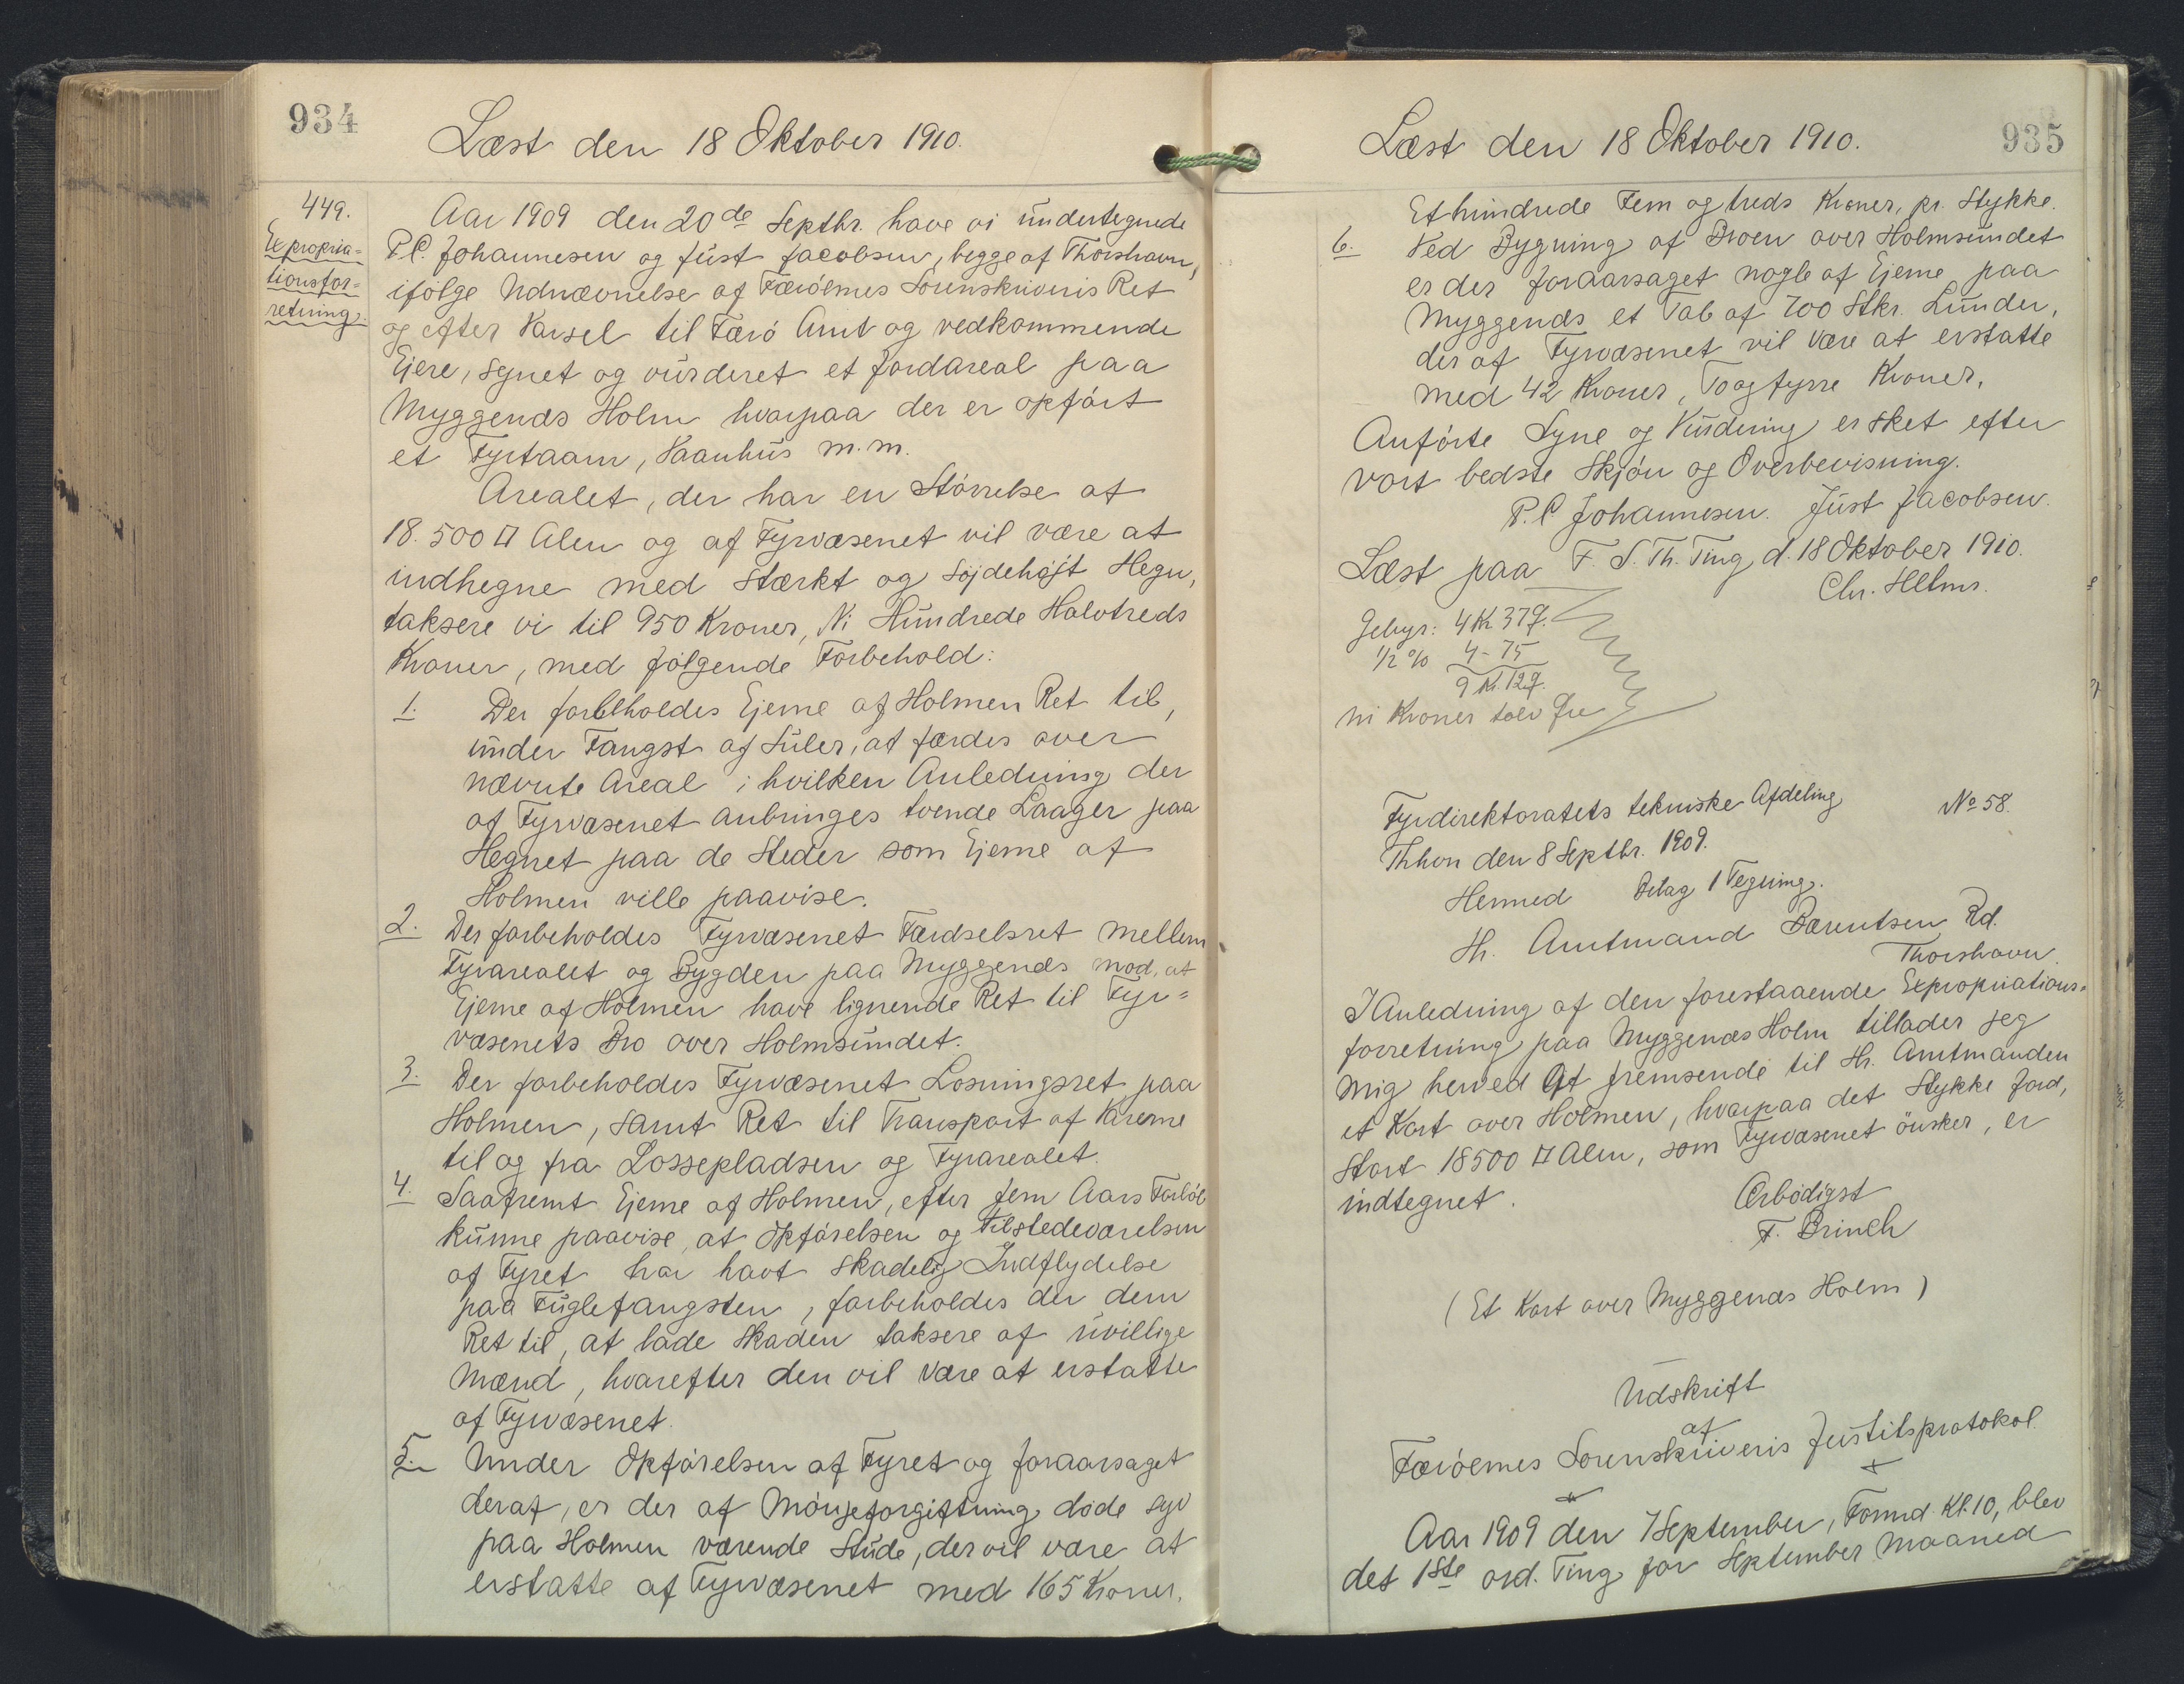 934
Læst den 18 Oktober 1910.
449.
Expropria=
tionsfor=
retning.
Aar 1909 den 20de Septbr. have vi undertegnede
P.C. Johannesen og Just Jacobsen, begge af Thorshavn,
ifølge Udnævnelse af Færöernes Sorenskriveris Ret
og efter Varsel til Færö Amt og vedkommende
Ejere, synet og vurderet et Jordareal paa
Myggenæs Holm hvorpaa der er opført
et Fyrtaarn, Vaanhus m.m.
Arealet, der har en Størrelse af
18.500 □ Alen og af Fyrvæsenet vil være at
indhegne med stærkt og Söjdehöjt Hegn,
taksere vi til 950 Kroner, Ni Hundrede Halvtreds
Kroner, med følgende Forbehold:
1. Der forbeholdes Ejerne af Holmen Ret til,
under Fangst af Suler, at færdes over
nævnte Areal i hvilken Anledning der
af Fyrvæsenet anbringes tvende Laager paa
Hegnet paa de Steder som Ejerne af
Holmen ville paavise.
2. Der forbeholdes Fyrvæsenet Færdselsret mellem
Fyrarealet og Bygden paa Myggenæs mod, at
Ejerne af Holmen have lignende Ret til Fyr=
væsenets Bro over Holmsundet.
3. Der forbeholdes Fyrvæsenet Losningsret paa
Holmen, samt Ret til Transport af Varerne
til og fra Lossepladsen og Fyrarealet.
4. Saafremt Ejerne af Holmen, efter fem Aars Forløb
kunne paavise, at Opførelsen og Tilstedeværelsen
af Fyret har havt skadelig Indflydelse
paa Fuglefangsten, forbeholdes der dem
Ret til, at lade Skaden taksere af uvillige
Mænd, hvorefter den vil være at erstatte
af Fyrvæsenet.
5. Under Opførelsen af Fyret og foraarsaget
deraf, er der af Mönjeforgiftning døde syv
paa Holmen værende Stude, der vil være at
erstatte af Fyrvæsenet med 165 Kroner,
Læst den 18 Oktober 1910.
935
Ethundrede Fem og treds Kroner, pr. Stykke.
6. Ved Bygning af Broen over Holmsundet
er der foraarsaget nogle af Ejerne paa
Myggenæs et Tab af 700 Stkr. Lunder,
der af Fyrvæsenet vil være at erstatte
med 42 Kroner, To og fyrre Kroner.
Anførte Syne og Vurdering er sket efter
vort bedste Skjøn og Overbevisning.
P.C Johannesen. Just Jacobsen.
Læst paa F. S. Th. Ting d. 18 Oktober 1910.
Chr. Helms.
Gebyr: 4 Kr 37 Ø.
1/2 % 4 - 75
9 Kr. 12 Ø.
ni Kroner tolv Øre
Fyrdirektoratets tekniske Afdeling No 58.
Thhvn den 8 Septbr. 1909.
Hermed Bilag 1 Tegning.
Hr. Amtmand Bærentsen Rd.
Thorshavn.
I Anledning af den forestaaende Expropriations=
forretning paa Myggenæs Holm tillader jeg
mig herved at fremsende til Hr. Amtmanden
et Kort over Holmen, hvorpaa det Stykke Jord,
stort 18500 □ Alen, som Fyrvæsenet ønsker, er
indtegnet.
Ærbødigst
F. Brinch
(Et Kort over Myggenæs Holm)
Udskrift
af
Færöernes Sorenskriveris Justitsprotokol.
Aar 1909 den 7 September, Formd. Kl. 10, blev
det 1ste ord. Ting for September Maaned